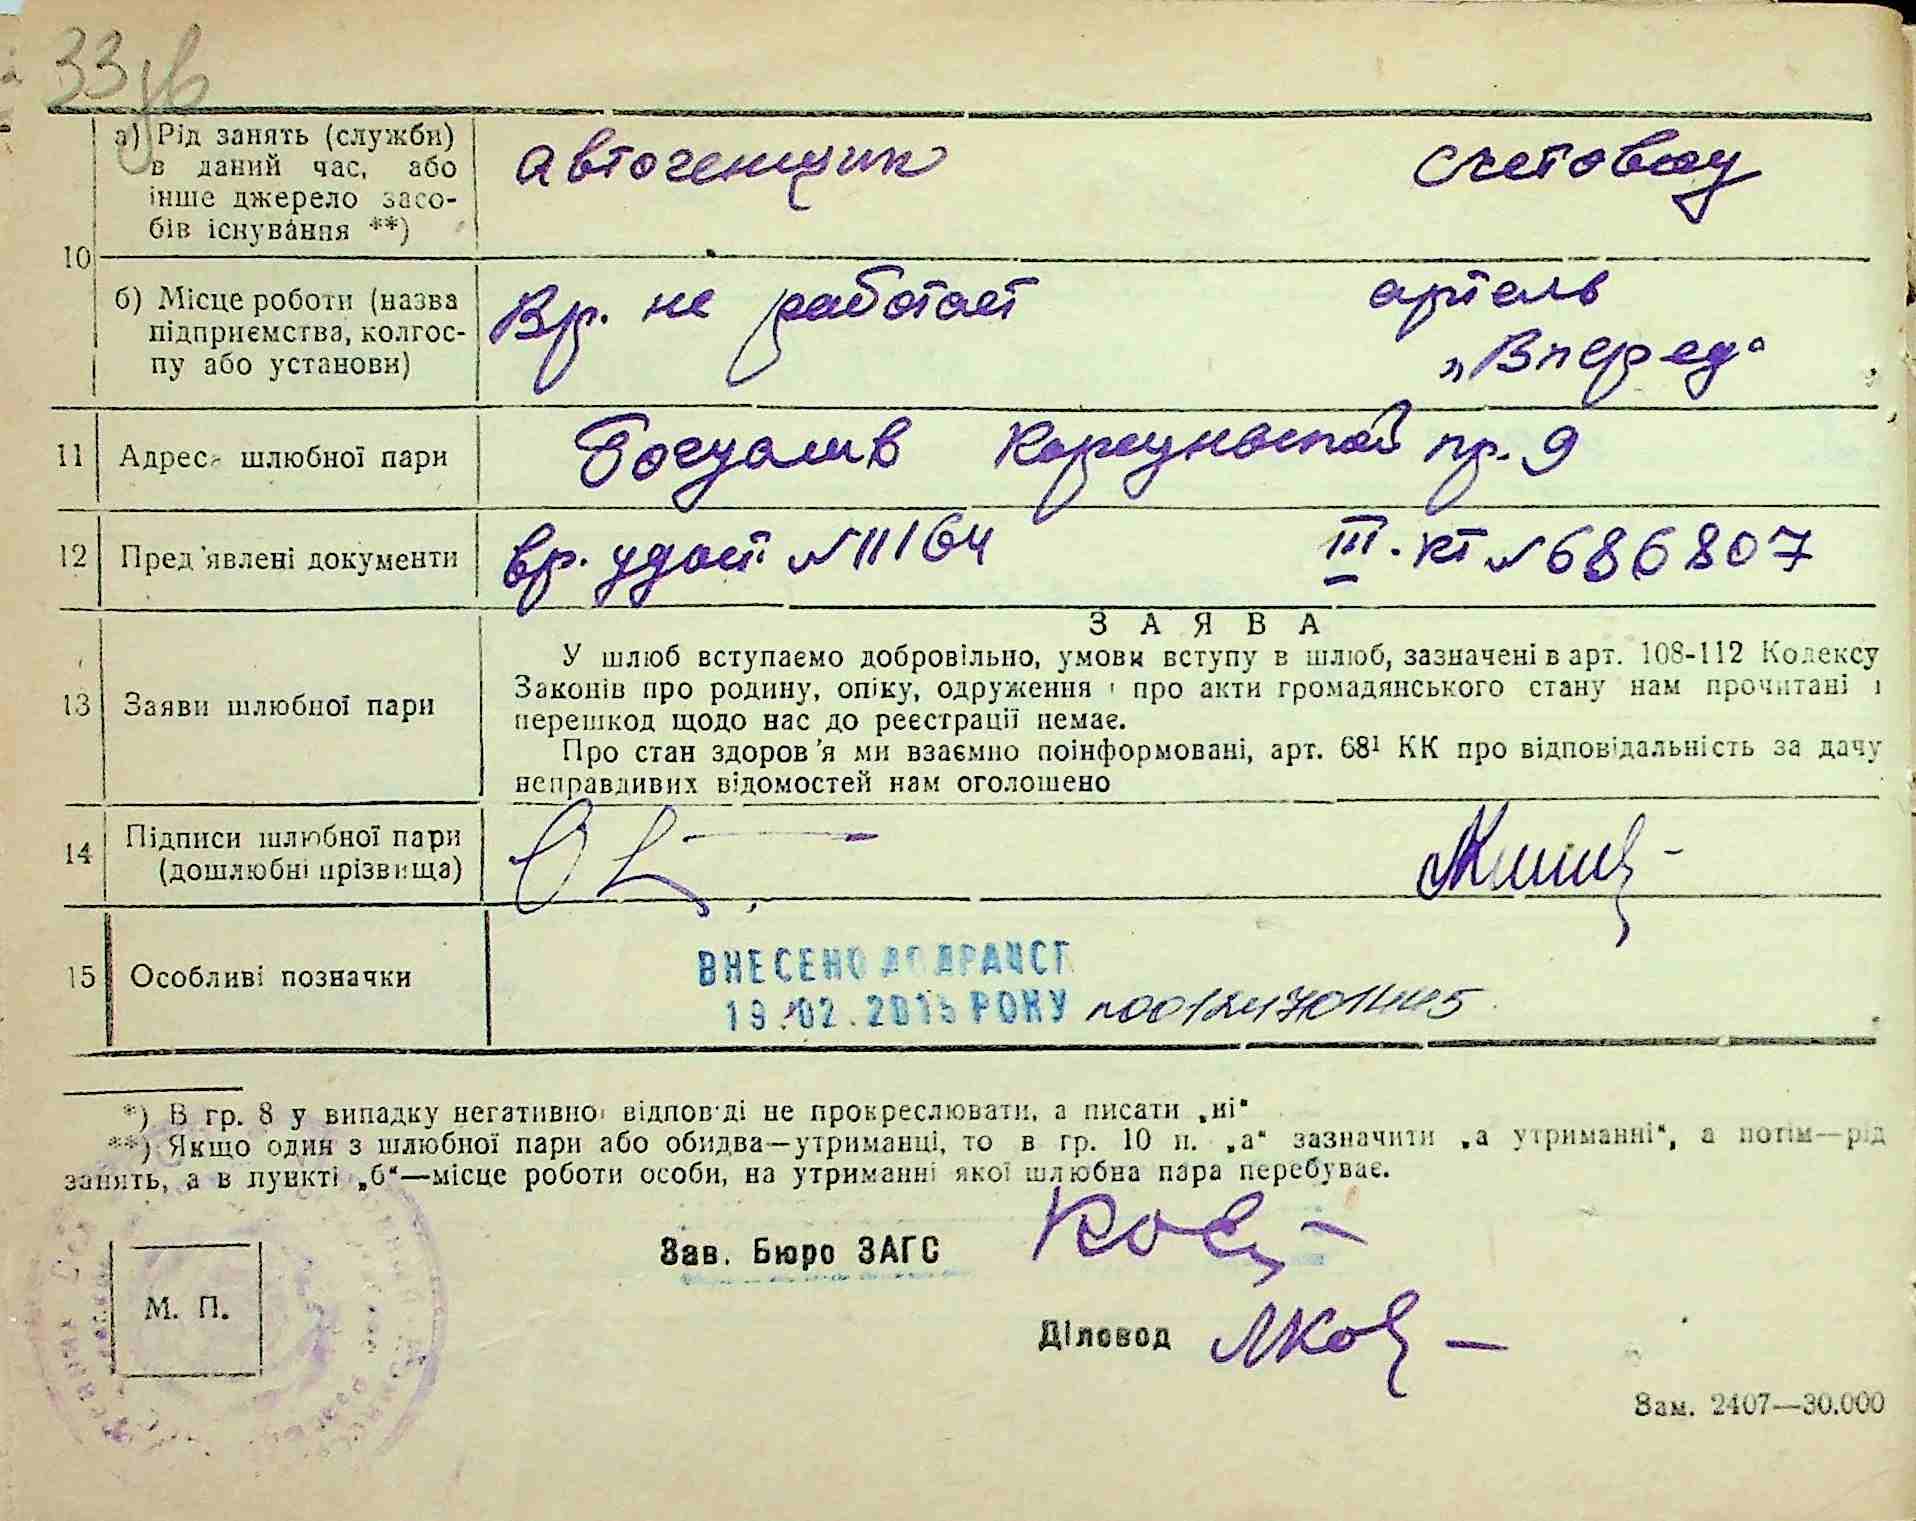 33
а) Рід занять (служби) в даний час, або інше джерело засобів існування **)
автогенщик
счетовод
10
б) Місце роботи (назва підприємства, колгоспу або установи)
Вр. не работает
артель
„Вперед“
11 Адреса шлюбної пари
Богуслав Корсунской пр. 9
12 Пред'явлені документи
вр. удост. № 11164
III. кт № 686807
З А Я В А
13 Заяви шлюбної пари
У шлюб вступаємо добровільно, умови вступу в шлюб, зазначені в арт. 108-112 Кодексу
Законів про родину, опіку, одруження і про акти громадянського стану нам прочитані і
перешкод щодо нас до реєстрації немає.
Про стан здоров'я ми взаємно поінформовані, арт. 68¹ КК про відповідальність за дачу
неправдивих відомостей нам оголошено
14 Підписи шлюбної пари (дошлюбні прізвища)
15 Особливі позначки
ВНЕСЕНО ДО ДРАЦСГ
19.02.2015 РОКУ
*) В гр. 8 у випадку негативної відповіді не прокреслювати, а писати „ні“
**) Якщо один з шлюбної пари або обидва—утриманці, то в гр. 10 п. „а“ зазначити „а утриманні“, а потім—рід
занять, а в пункті „б“—місце роботи особи, на утриманні якої шлюбна пара перебуває.
Зав. Бюро ЗАГС
М. П.
Діловод
Зам. 2407—30.000